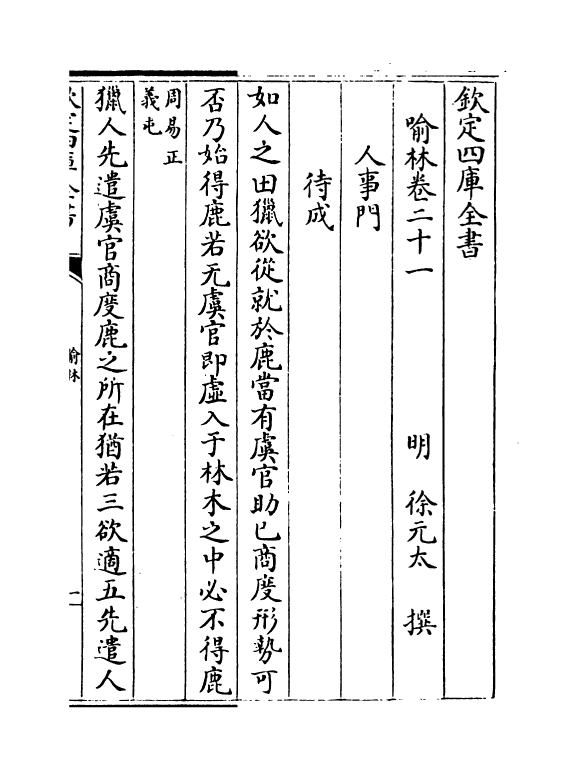 欽定四庫全書
喻林卷二十一
明 徐元太 撰
人事門
待成
如人之田獵欲從就於鹿當有虞官助已商度形勢可
否乃始得鹿若无虞官即虛入于林木之中必不得鹿
周易正
義屯
獵人先遣虞官商度鹿之所在猶若三欲適五先遣人
欽定四庫全書
喻林
一